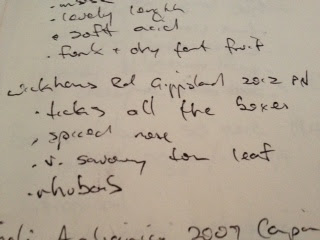 . lovely length
. soft acid
. funk + dry fant fruit
Wickhams Rd Gippsland 2012 PN
. ticks all the boxes
, spiced nose
. v. savoury tom leaf
. rhubarb
2009